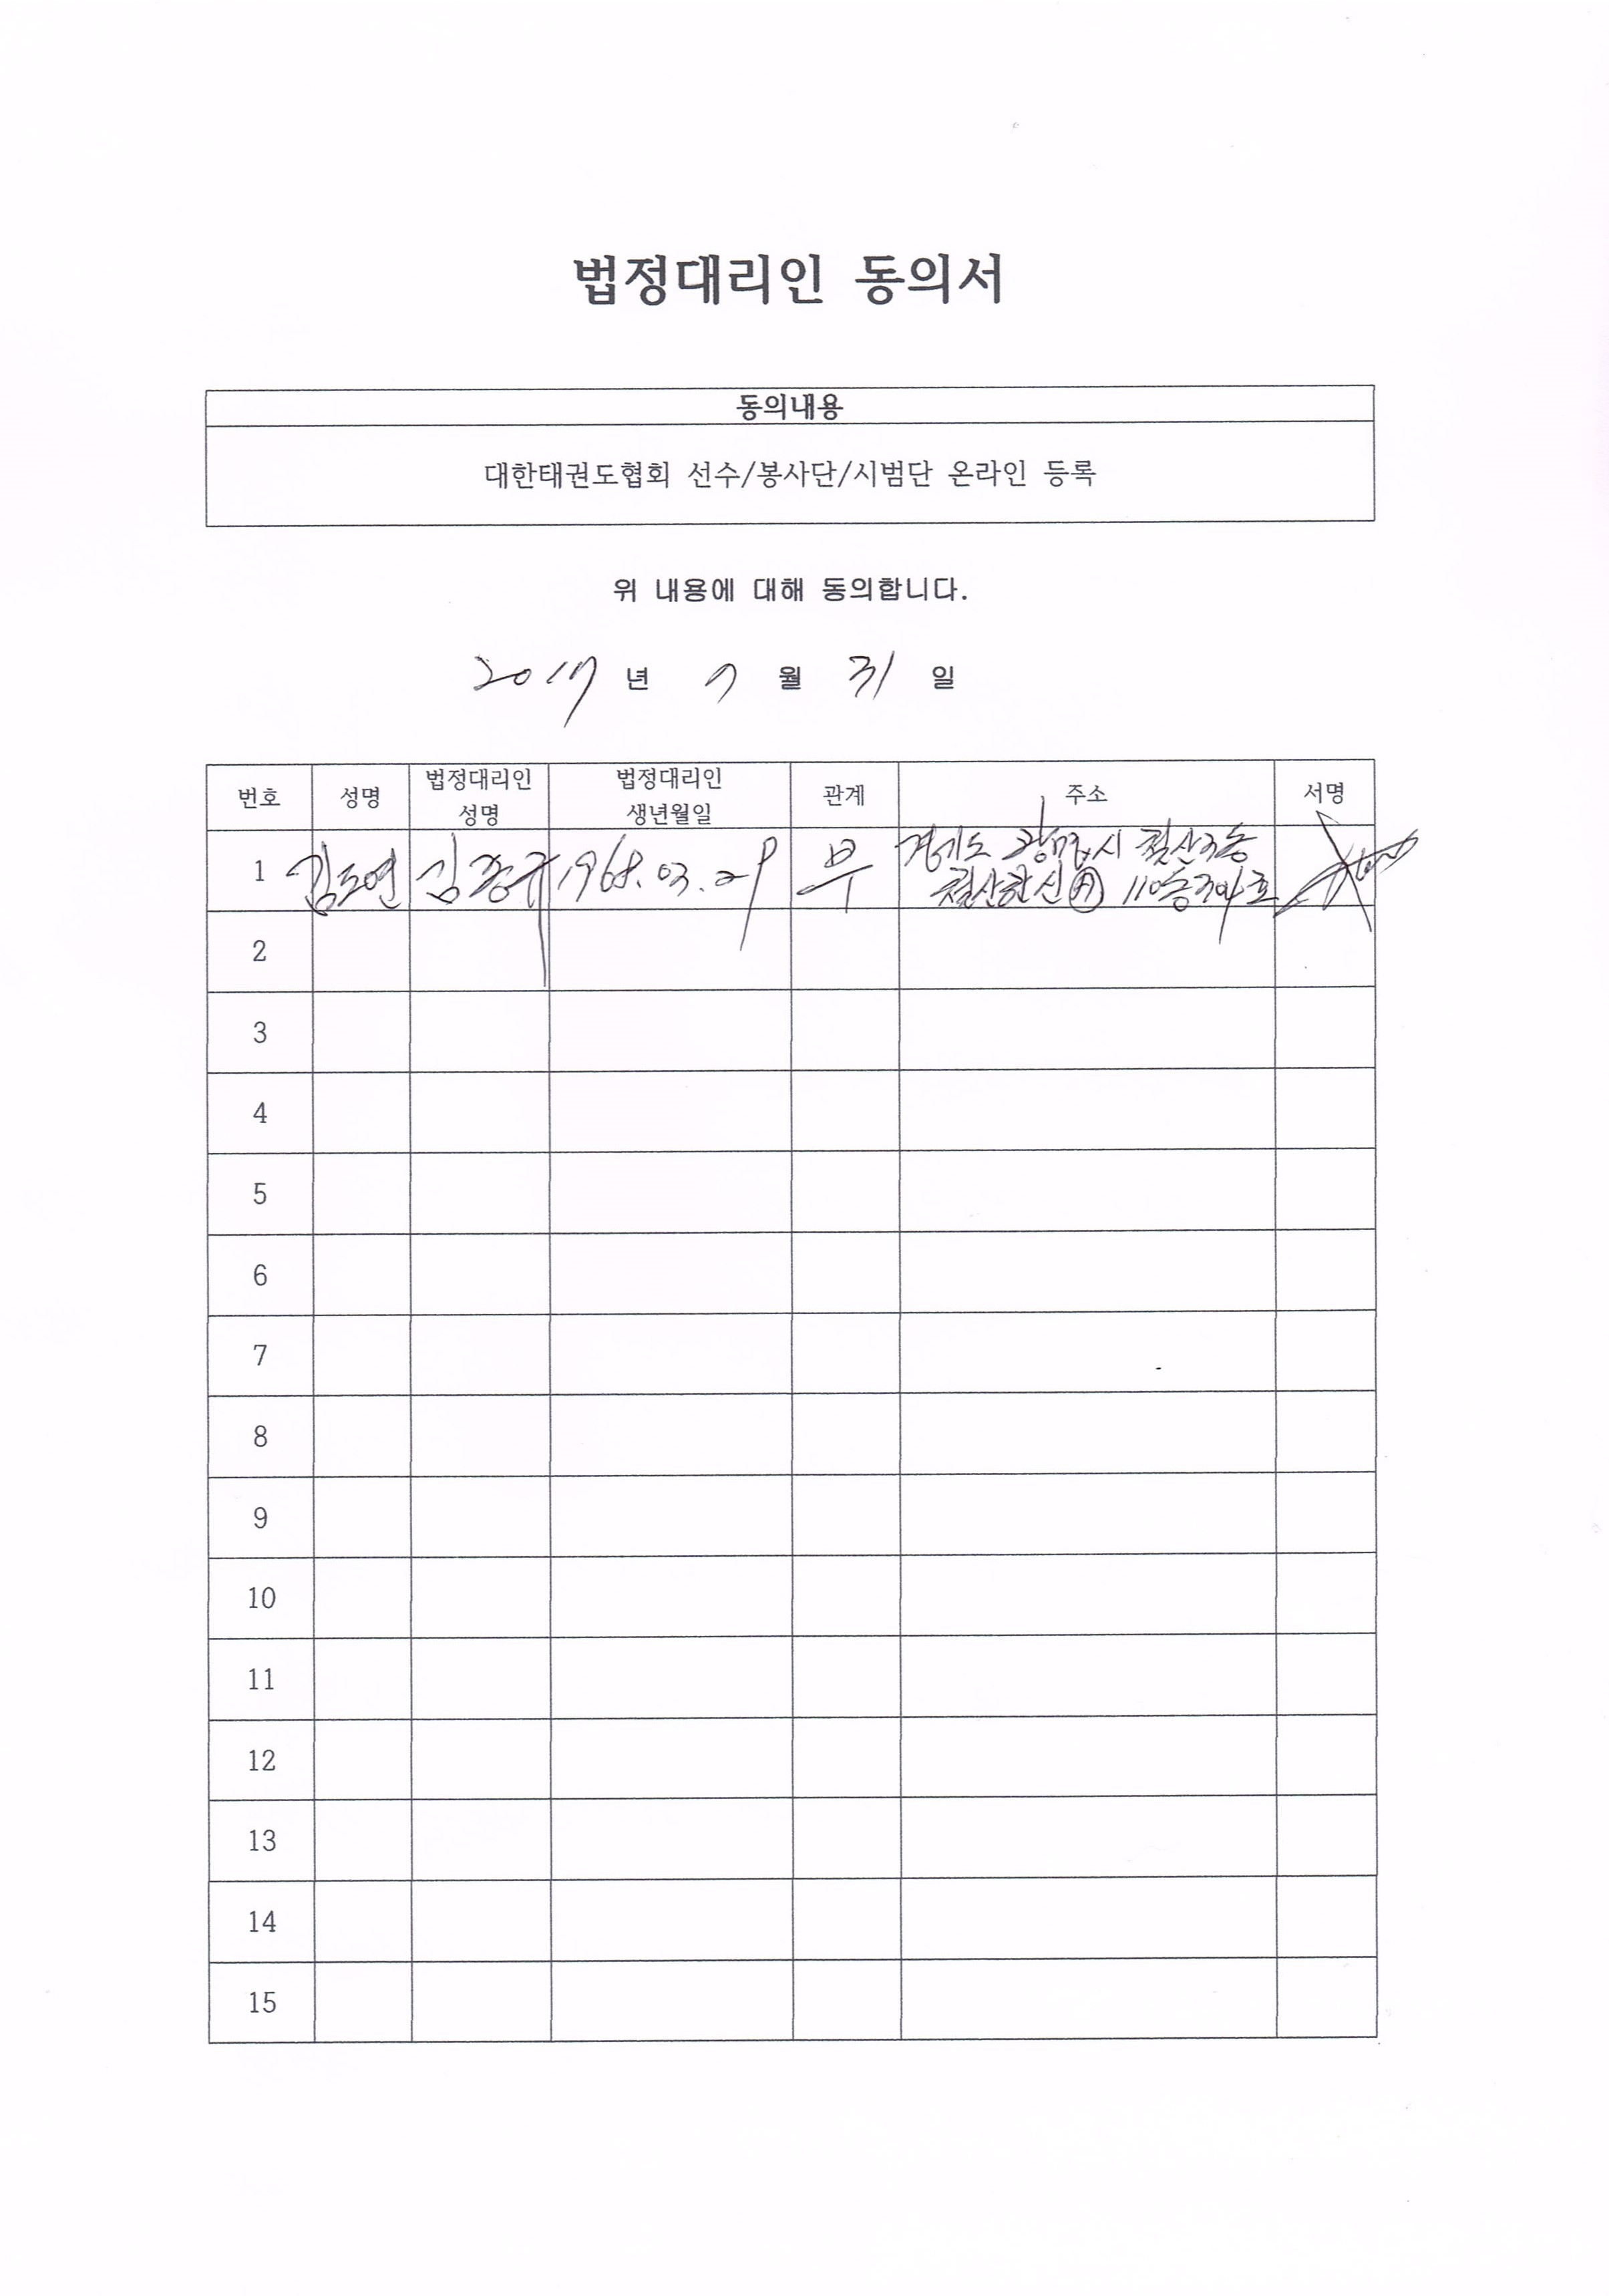 법정대리인 동의서
동의내용
대한태권도협회 선수/봉사단/시범단 온라인 등록
위 내용에 대해 동의합니다.
2017 년 7 월 31 일
번호 성명 법정대리인 성명 법정대리인 생년월일 관계 주소 서명
1 김도연 김종규 1968.03.29 부 경기도 광명시 철산3동
철산한신 110동 304호
2
3
4
5
6
7
8
9
10
11
12
13
14
15